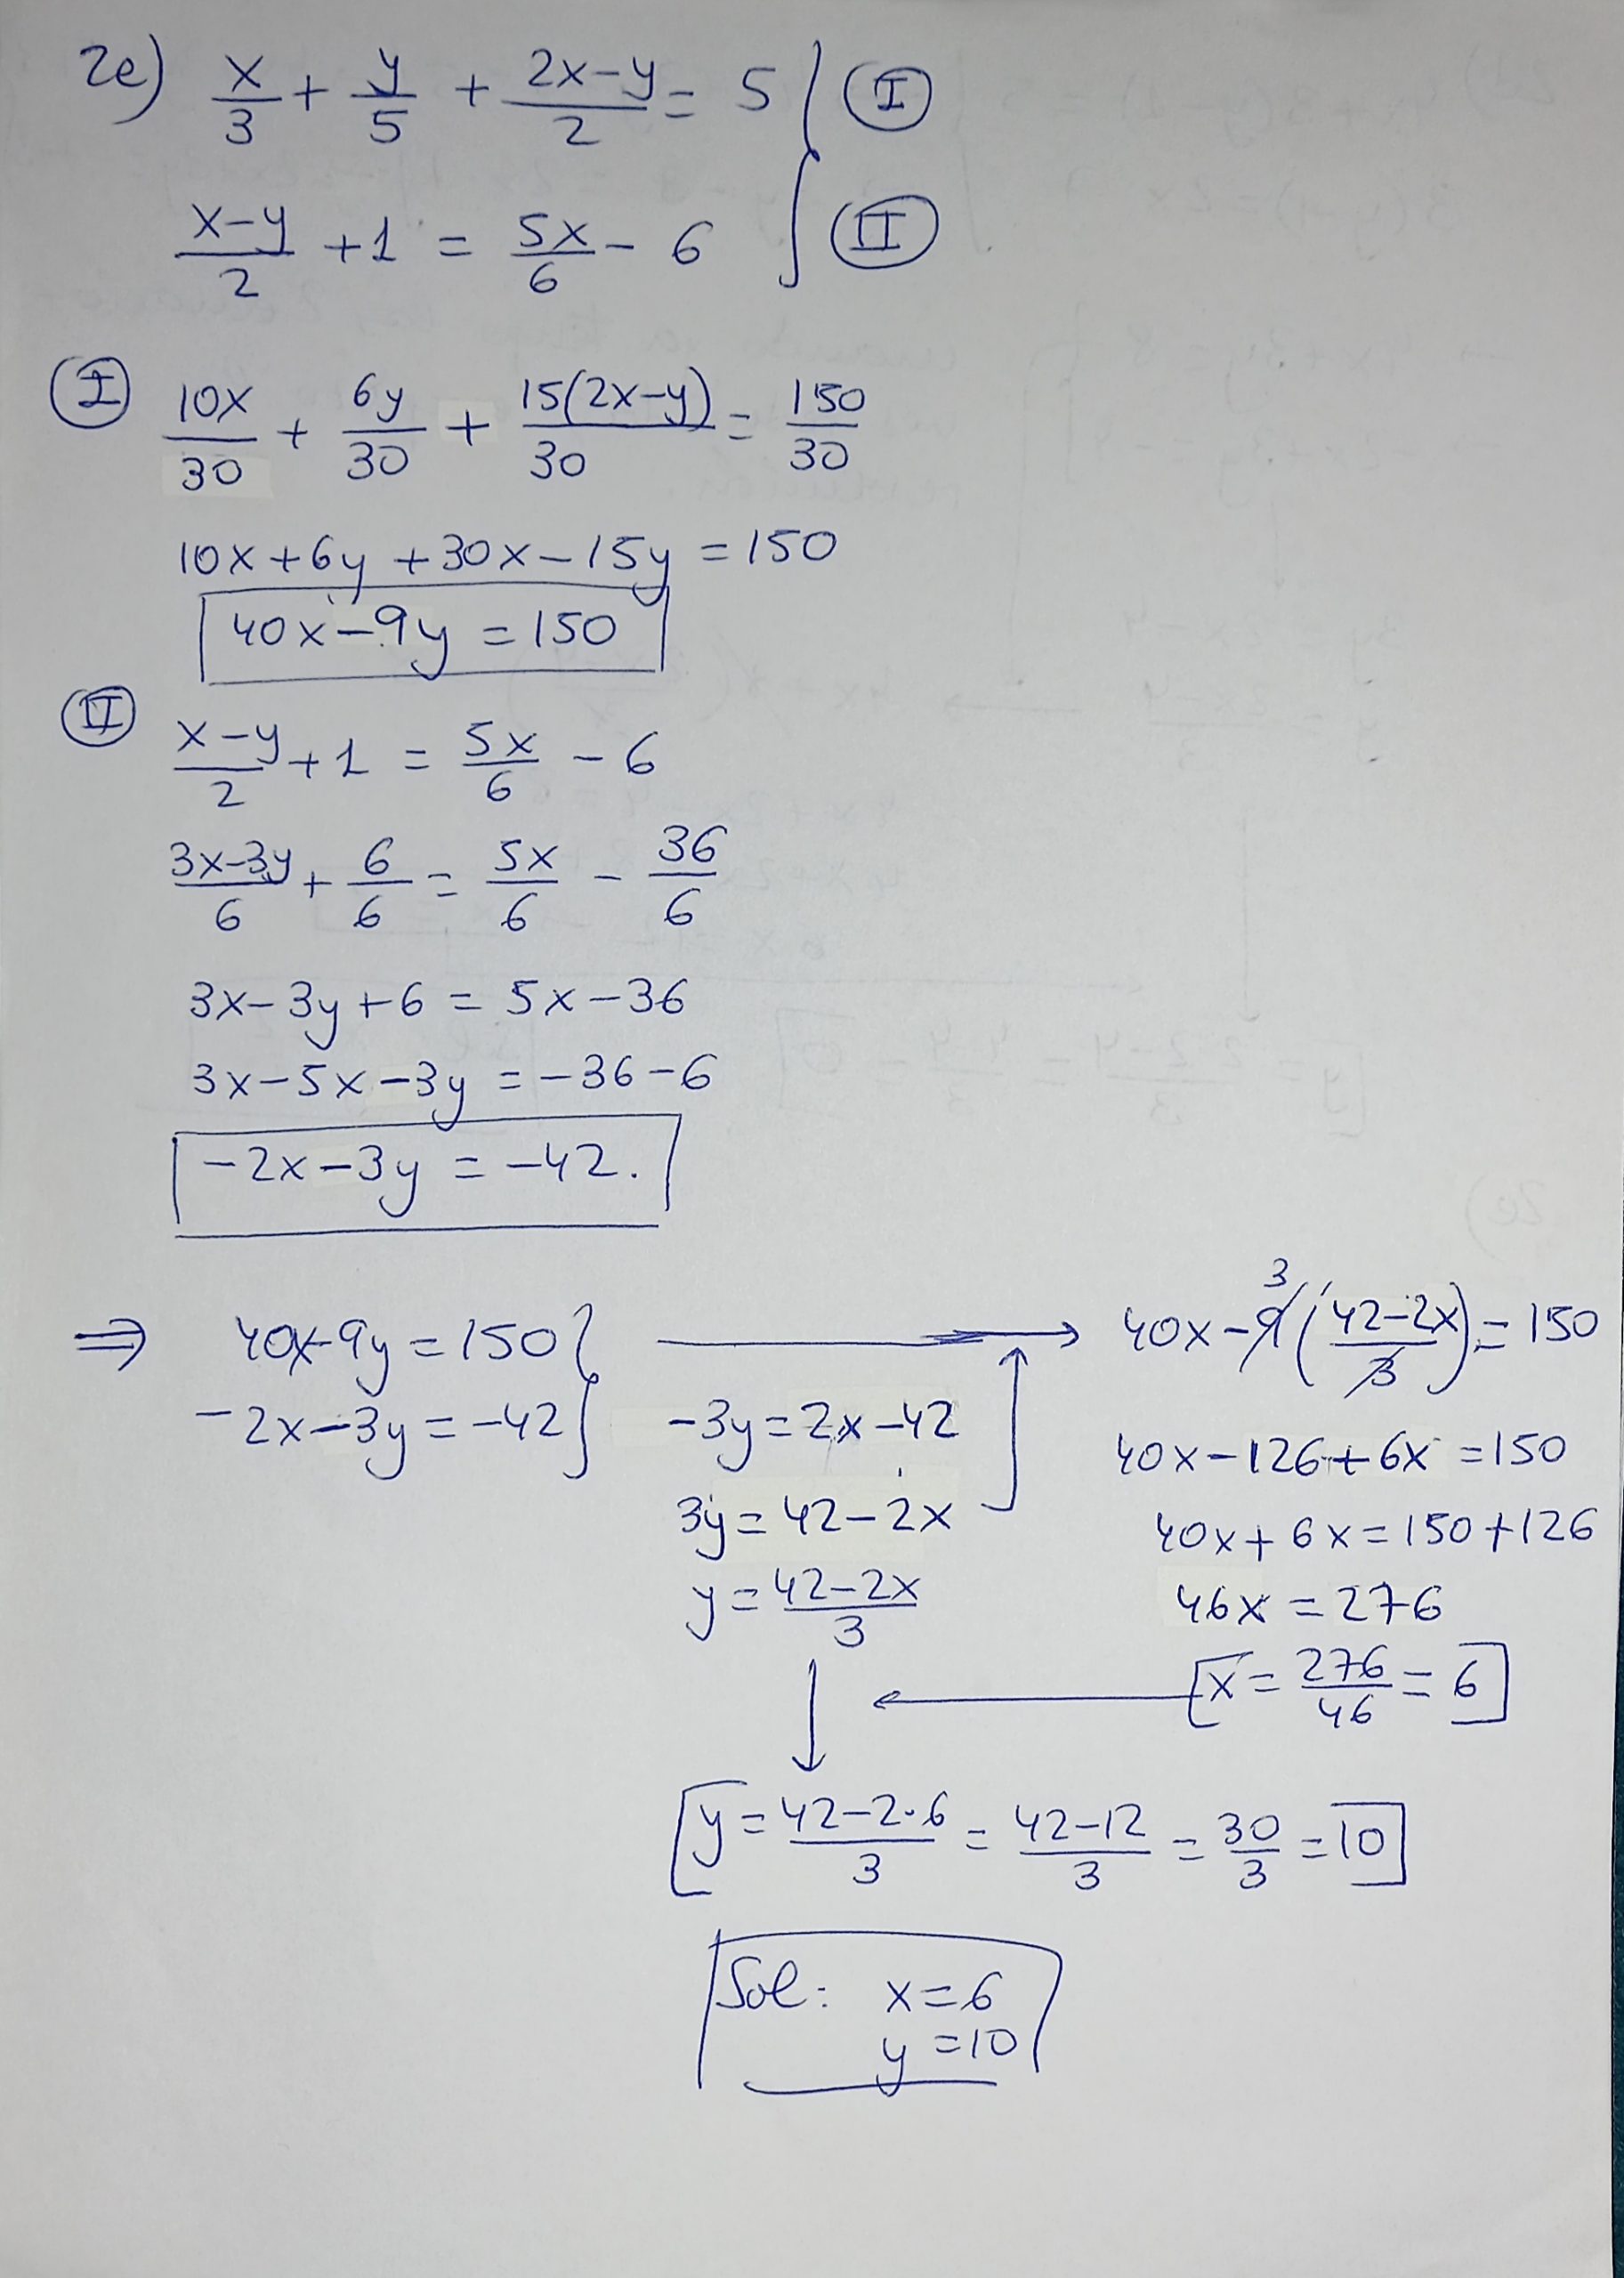 2e) x/3 + y/5 + (2x-y)/2 = 5 } Ⓘ
(x-y)/2 + 1 = 5x/6 - 6 } Ⓘⓘ
Ⓘ 10x/30 + 6y/30 + 15(2x-y)/30 = 150/30
10x+6y+30x-15y = 150
40x-9y = 150
(II) (x-y)/2 + 1 = 5x/6 - 6
(3x-3y)/6 + 6/6 = 5x/6 - 36/6
3x-3y+6 = 5x-36
3x-5x-3y = -36-6
-2x-3y = -42.
⇒ 40x-9y = 150 }
-2x-3y = -42 }
-3y = 2x-42
3y = 42-2x
y = (42-2x)/3
→ 40x - 9 3 ((42-2x)/3) = 150
40x-126+6x = 150
40x+6x = 150+126
46x = 276
[x = 276/46 = 6]
[y = (42-2·6)/3 = (42-12)/3 = 30/3 = 10]
Sol: x=6
y=10